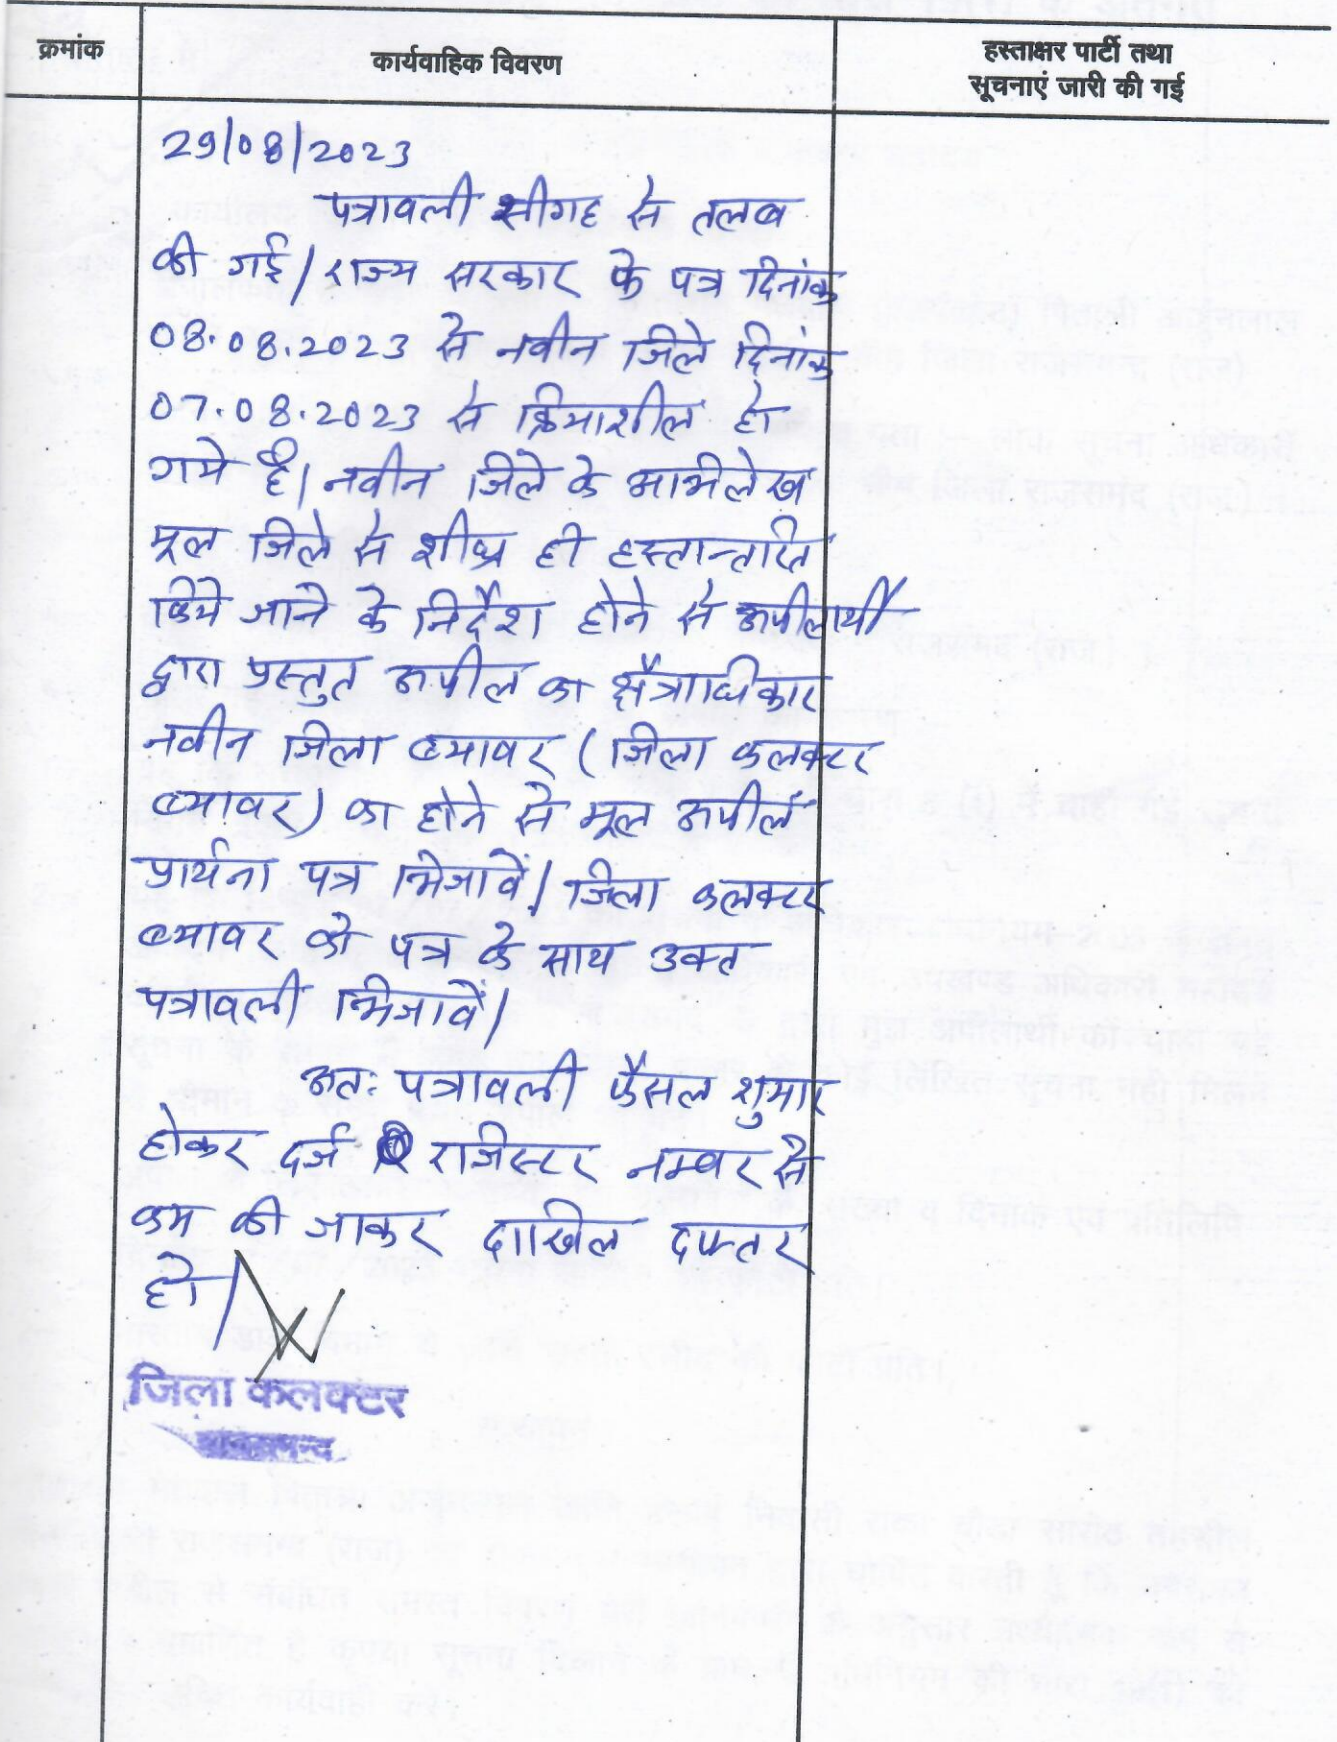 क्रमांक
कार्यवाहिक विवरण
हस्ताक्षर पार्टी तथा
सूचनाएं जारी की गई
29/08/2023
पत्रावली सीगह से तलब
की गई। राज्य सरकार के पत्र दिनांक
08.08.2023 से नवीन जिले दिनांक
07.08.2023 से क्रियाशील हो
गये है। नवीन जिले के अभिलेख
मूल जिले से शीघ्र ही हस्तान्तरित
किये जाने के निर्देश होने से अपीलार्थी
द्वारा प्रस्तुत अपील का क्षैत्राधिकार
नवीन जिला ब्यावर (जिला कलक्टर
ब्यावर) का होने से मूल अपील
प्रार्थना पत्र भिजावें। जिला कलक्टर
ब्यावर को पत्र के साथ उक्त
पत्रावली भिजावें।
अतः पत्रावली फैसल शुमार
होकर दर्ज रजिस्टर नम्बर से
कम की जाकर दाखिल दफ्तर
हो।
जिला कलक्टर
राजसमन्द